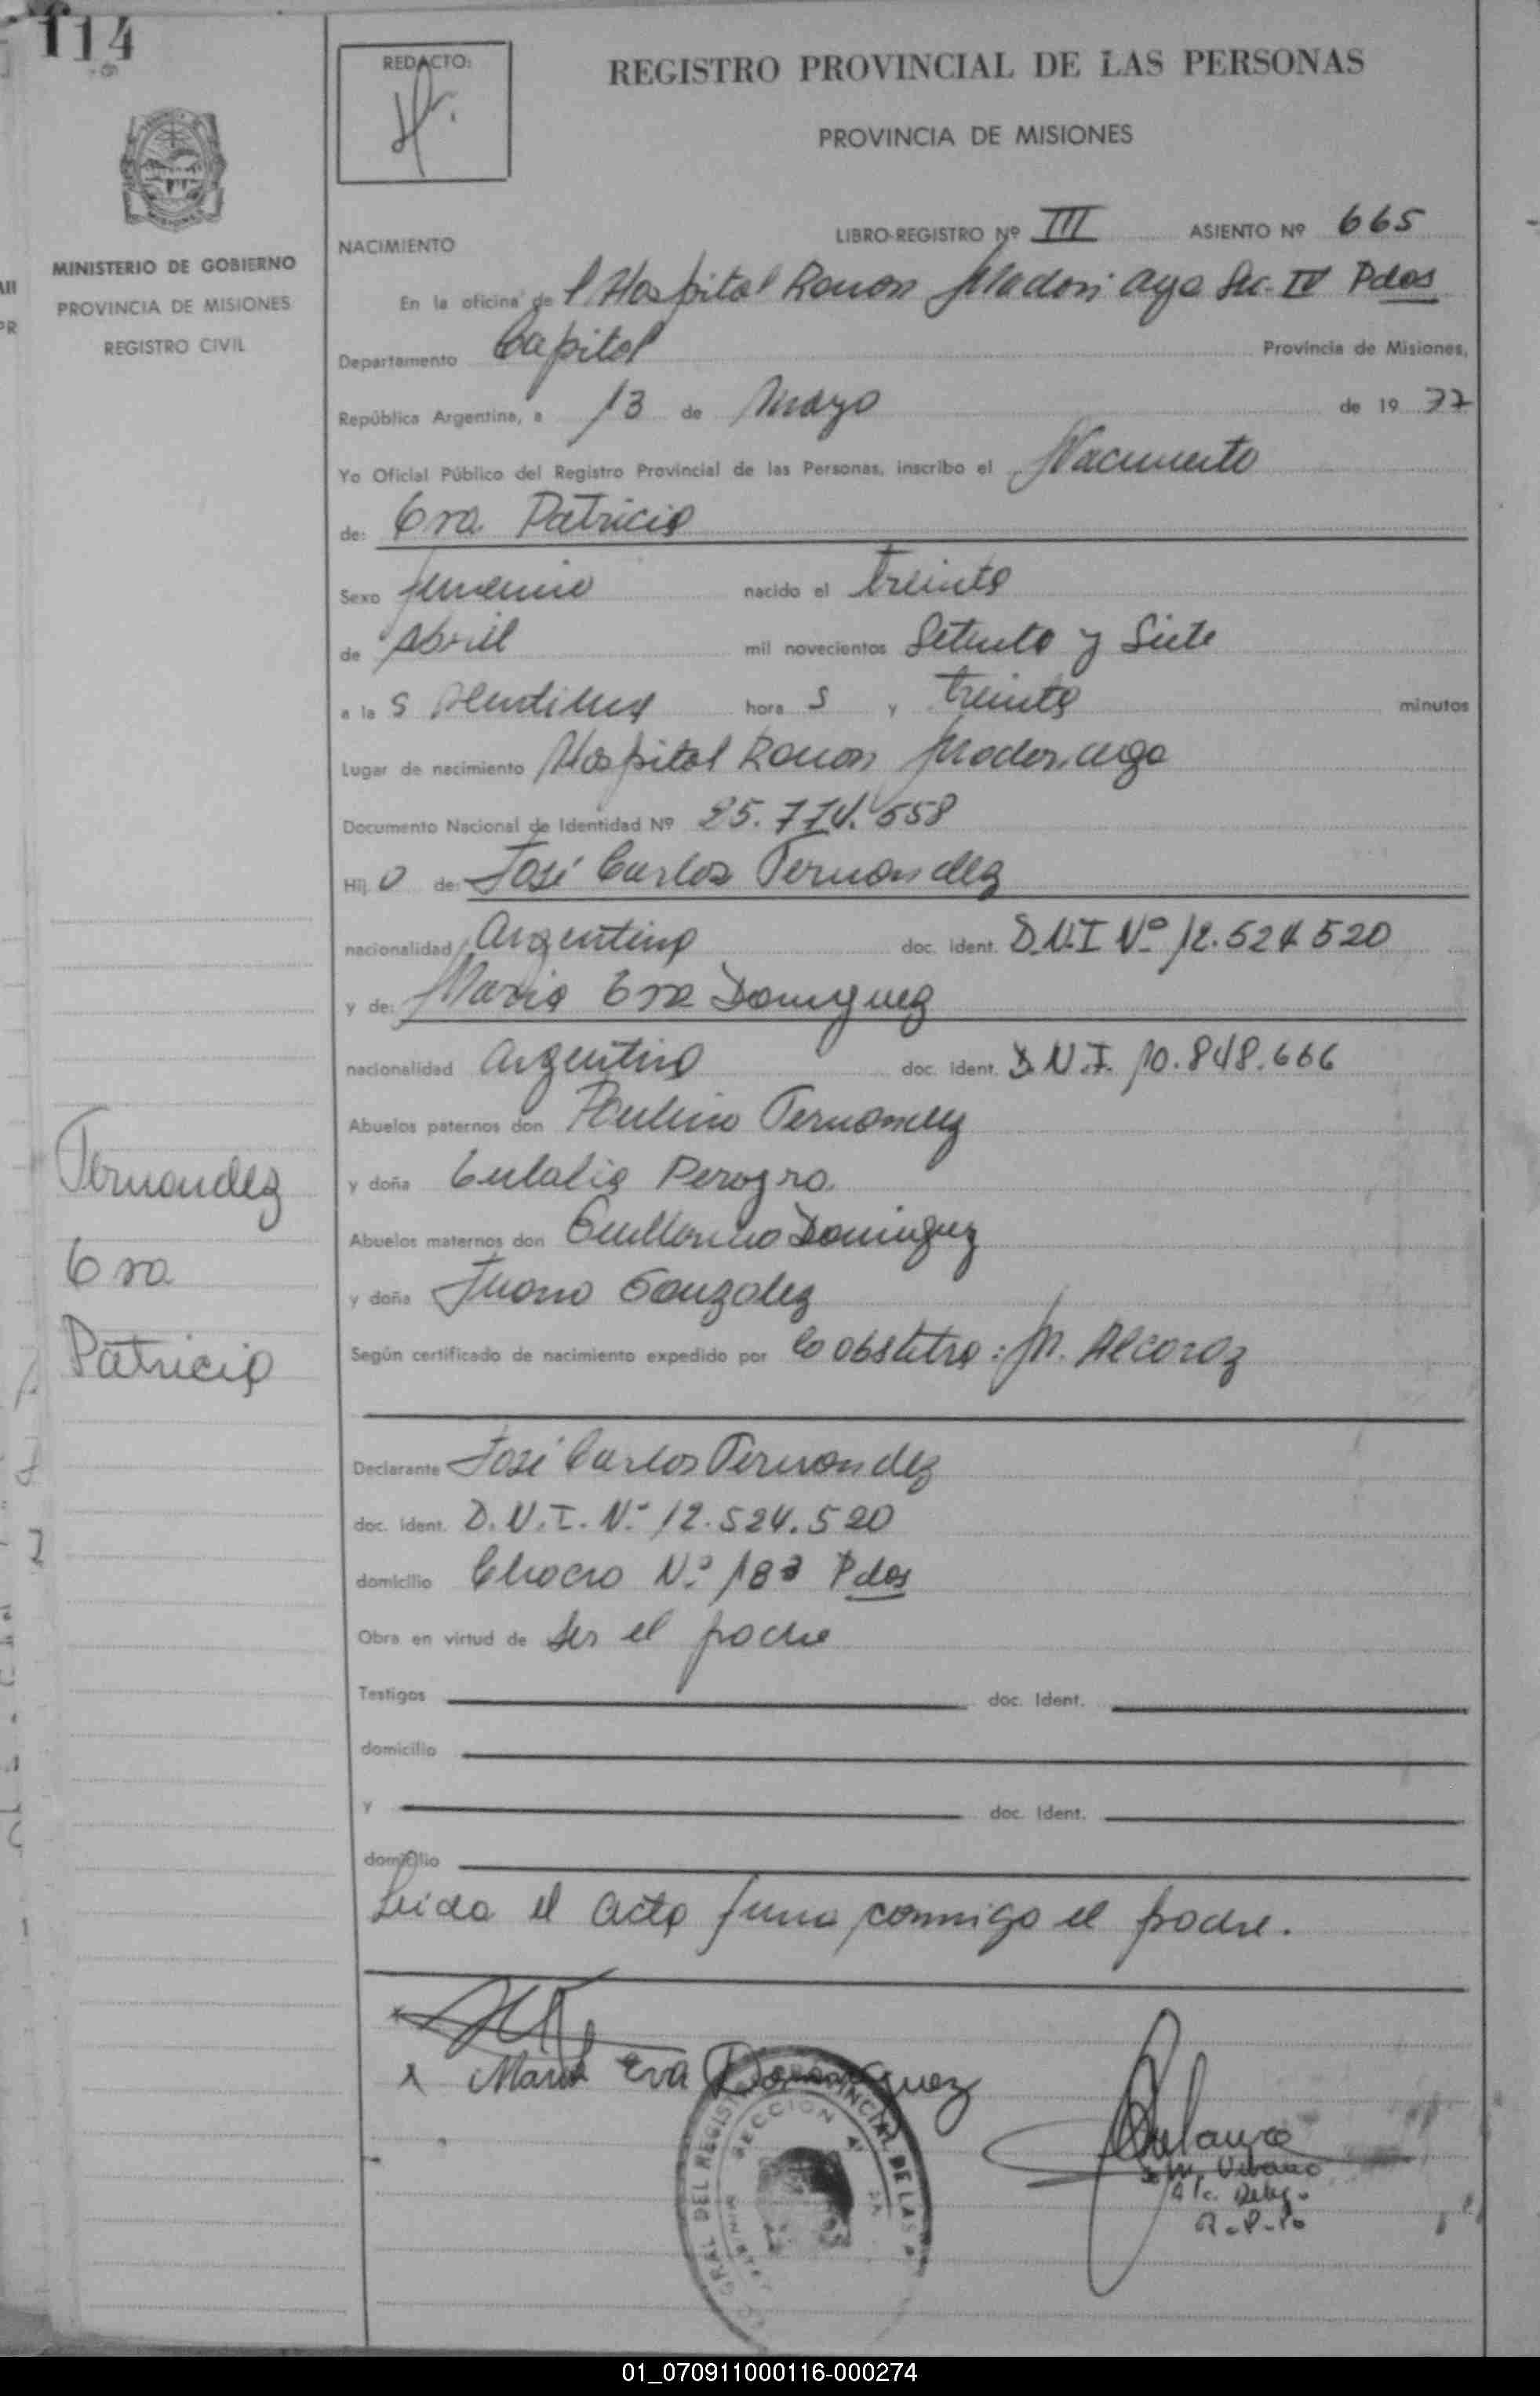 114
REDACTO:
REGISTRO PROVINCIAL DE LAS PERSONAS
PROVINCIA DE MISIONES
MINISTERIO DE GOBIERNO
PROVINCIA DE MISIONES
REGISTRO CIVIL
NACIMIENTO
LIBRO-REGISTRO Nº III ASIENTO Nº 665
En la oficina de l Hospital Ramon Madariaga Sec. IV Pdas
Departamento Capital Provincia de Misiones,
República Argentina, a 13 de Mayo de 19 77
Yo Oficial Público del Registro Provincial de las Personas, inscribo el Nacimiento
de: Eva Patricia
Sexo femenino nacido el treinta
de Abril mil novecientos Setenta y Siete
a la s hora s y treinta minutos
Lugar de nacimiento Hospital Ramon Madariaga
Documento Nacional de Identidad Nº 25.774.558
Hij o de: José Carlos Fernandez
nacionalidad Argentina doc. ident. D.N.I Nº 12.524.520
y de: Maria Eva Dominguez
nacionalidad Argentina doc. ident. D.N.I. 10.848.666
Abuelos paternos don Paulino Fernandez
y doña Eulalia
Abuelos maternos don Guillermo Dominguez
y doña Juana Gonzalez
Según certificado de nacimiento expedido por la obstetra: M. Alcaraz
Fernandez
Eva
Patricia
Declarante José Carlos Fernandez
doc. ident. D.N.I. Nº 12.524.520
domicilio Chaco Nº Pdas
Obra en virtud de ser el padre
Testigos doc. ident.
domicilio
y doc. ident.
domicilio
Leida el acta firma conmigo el padre.
Maria Eva Dominguez
SECCION
01_070911000116-000274